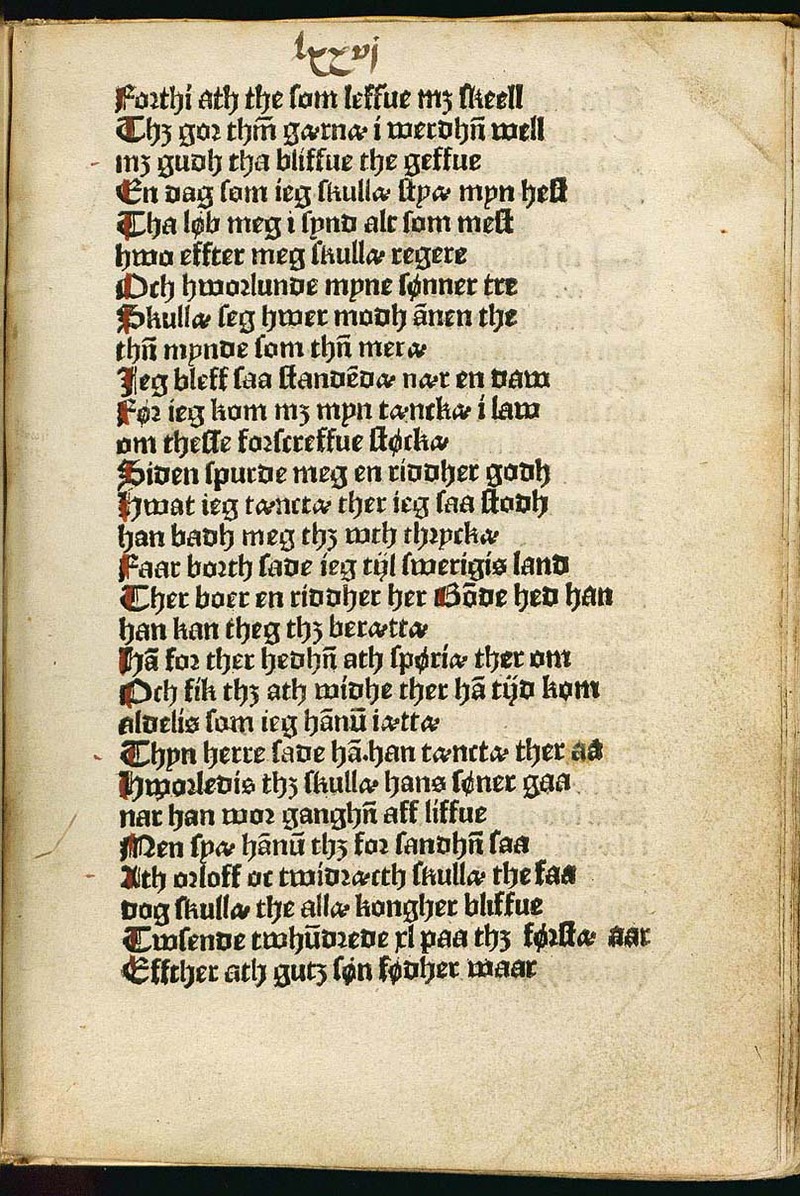 lxxvj
Forthi ath the som leffue mꝫ skeell
Thꝫ gor thm̄ gærnæ i werdhn̄ well
mꝫ gudh tha bliffue the geffue
En dag som ieg skullæ styæ myn hest
Tha løb meg i synd alt som mest
hwo effter meg skullæ regere
Och hworlunde myne sønner tre
Skullæ seg hwer modh ānen the
thn̄ mynde som thn̄ meræ
Jeg bleff saa standēdæ nær en dam
Før ieg kom mꝫ myn tænckæ i law
om thesse forscreffue støckæ
Siden spurde meg en riddher godh
Hwat ieg tænctæ ther ieg saa stodh
han badh meg thꝫ wth thryckæ
Faar borth sade ieg tijl swerigis land
Ther boer en riddher her Bōde hed han
han kan theg thꝫ berættæ
Hā for ther hedhn̄ ath spøriæ ther om
Och fik thꝫ ath widhe ther hā tijd kom
aldelis som ieg hānū iættæ
Thyn herre sade hā.han tænctæ ther aa
Hworledis thꝫ skullæ hans søner gaa
nar han wor ganghn̄ aff liffue
Men syæ hānū thꝫ for sandhn̄ saa
Ath orloff oc twidræcth skullæ the faa
dog skullæ the allæ kongher bliffue
Twsende twhūdrede xl paa thꝫ førstæ aar
Effther ath gutꝫ søn fødher waar